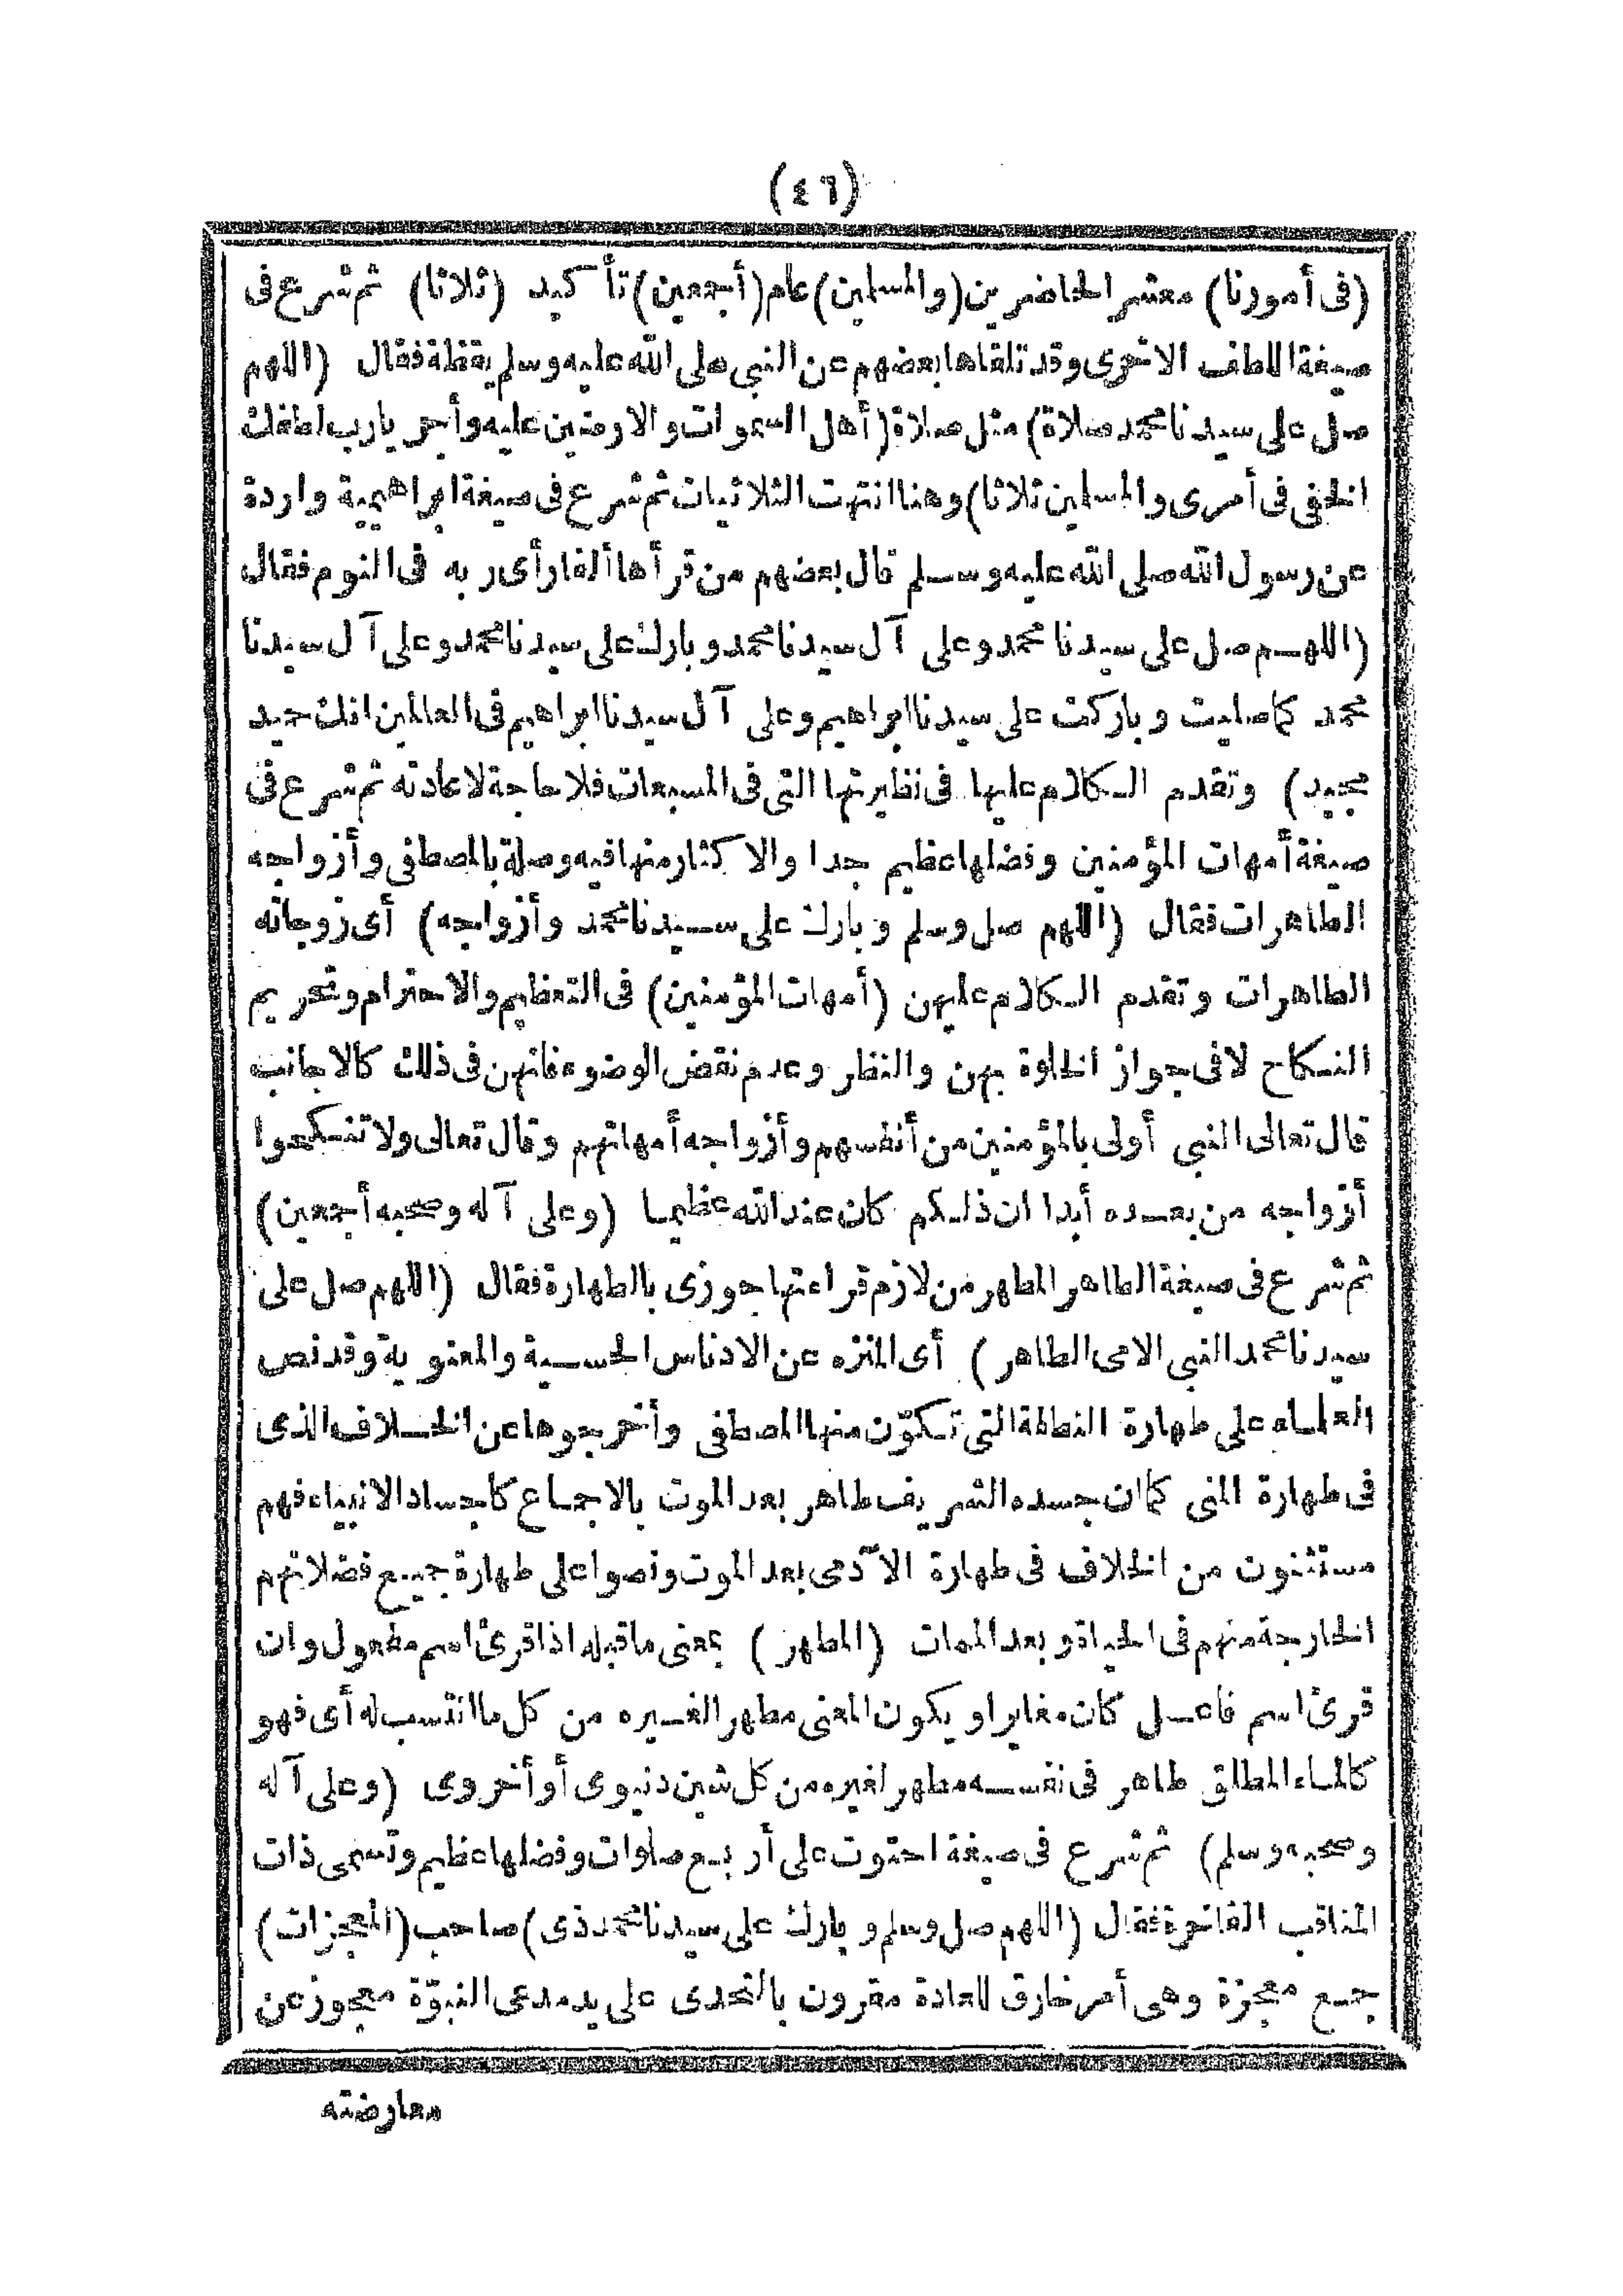 (٤٦)
(فى أمورنا) معشر الحاضرين (والمسلمين) عام (أجمعين) تأكيد (ثلاثا) ثم شرع فى
صيغة اللطف الاخرى وقد تلقاها بعضهم عن النبى صلى الله عليه وسلم يقظة فقال (اللهم
صل على سيدنا محمد صلاة) مثل صلاة (أهل السموات والارضين عليه وأجر يا رب لطفك
الخفى فى أمرى والمسلمين ثلاثا) وهنا انتهت الثلاثيات ثم شرع فى صيغة ابراهيمية واردة
عن رسول الله صلى الله عليه وسلم قال بعضهم من قرأها ألفا رأى ربه فى النوم فقال
(اللهم صل على سيدنا محمد وعلى آل سيدنا محمد وبارك على سيدنا محمد وعلى آل سيدنا
محمد كما صليت وباركت على سيدنا ابراهيم وعلى آل سيدنا ابراهيم فى العالمين انك حميد
مجيد) وتقدم الكلام عليها فى نظيرتها التى فى المسبعات فلا حاجة لاعادته ثم شرع فى
صيغة أمهات المؤمنين وفضلها عظيم جدا والاكثار منها فيه وصلة بالمصطفى وأزواجه
الطاهرات فقال (اللهم صل وسلم وبارك على سيدنا محمد وأزواجه) أى زوجاته
الطاهرات وتقدم الكلام عليهن (أمهات المؤمنين) فى التعظيم والاحترام وتحريم
النكاح لا فى جواز الخلوة بهن والنظر وعدم نقض الوضوء فانهن فى ذلك كالاجانب
قال تعالى النبى أولى بالمؤمنين من أنفسهم وأزواجه أمهاتهم وقال تعالى ولا تنكحوا
أزواجه من بعده أبدا ان ذلكم كان عند الله عظيما (وعلى آله وصحبه أجمعين)
ثم شرع فى صيغة الطاهر المطهر من لازم قراءتها جوزى بالطهارة فقال (اللهم صل على
سيدنا محمد النبى الامى الطاهر) أى المنزه عن الادناس الحسية والمعنوية وقد نص
العلماء على طهارة النطفة التى تكوّن منها المصطفى وأخرجوها عن الخلاف الذى
فى طهارة المنى كما ان جسده الشريف طاهر بعد الموت بالاجماع كاجساد الانبياء فهم
مستثنون من الخلاف فى طهارة الآدمى بعد الموت ونصوا على طهارة جميع فضلاتهم
الخارجة منهم فى الحياة وبعد الممات (المطهر) بمعنى ما قبله اذا قرئ اسم مفعول وان
قرئ اسم فاعل كان مغايرا ويكون المعنى مطهر الغيره من كل ما انتسب له أى فهو
كالماء المطلق طاهر فى نفسه مطهر لغيره من كل شين دنيوى أو أخروى (وعلى آله
وصحبه وسلم) ثم شرع فى صيغة احتوت على أربع صلوات وفضلها عظيم وتسمى ذات
المناقب الفاخرة فقال (اللهم صل وسلم وبارك على سيدنا محمد ذى) صاحب (المعجزات)
جمع معجزة وهى أمر خارق للعادة مقرون بالتحدى على يد مدعى النبوّة معجوز عن
معارضته